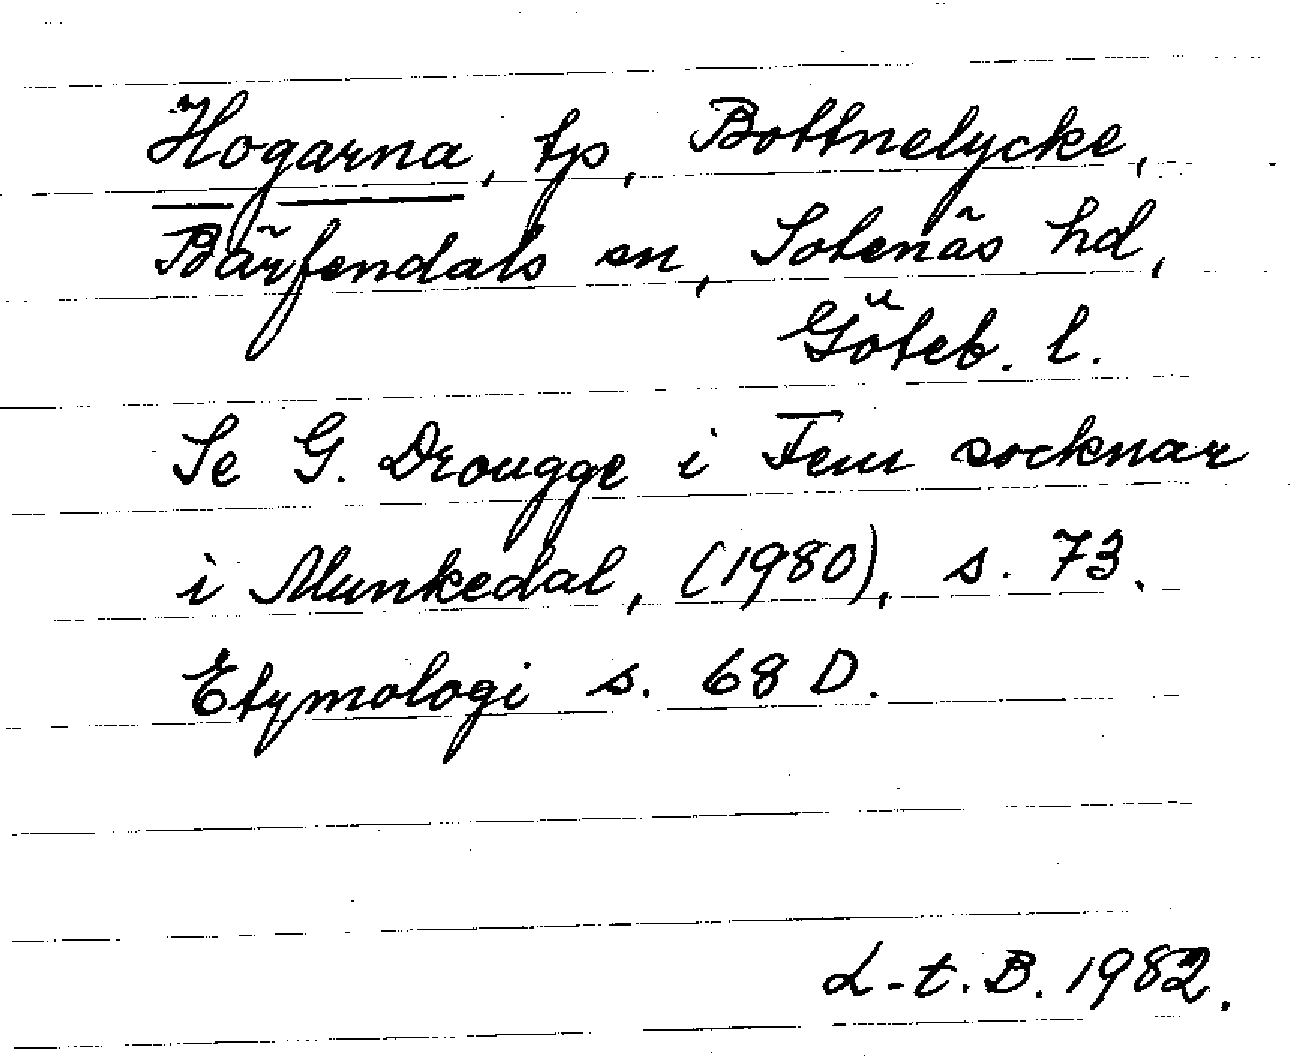 Hogarna, tp, Bottnelycke,
Bärfendals sn, Sotenäs hd,
Göteb. l.
Se G. Drougge i Fem socknar
i Munkedal, (1980), s. 73.
Etymologi s. 68 D.
L-t. B. 1982.